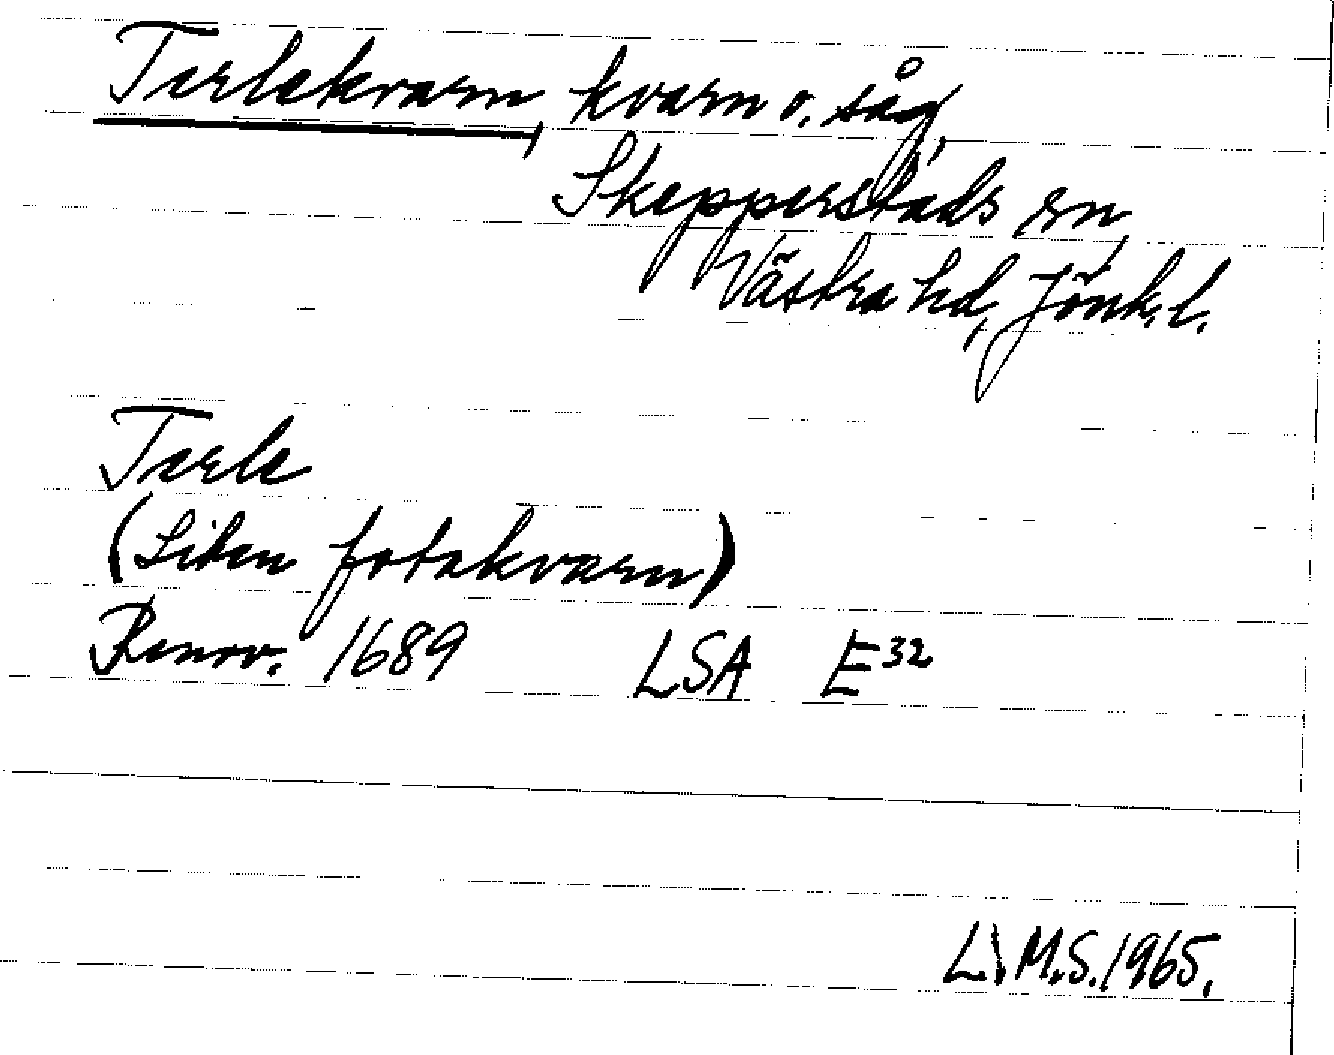 Terlekvarn, kvarn o. såg,
Skepperstads sn,
Västra hd, Jönk. l.
Terle
(Liten fotakvarn)
Renov. 1689 LSA E³²
L. M.S. 1965.